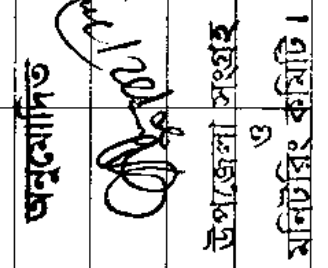 অনুমোদিত
উপজেলা সংগ্রহ
ও
মনিটরিং কমিটি।